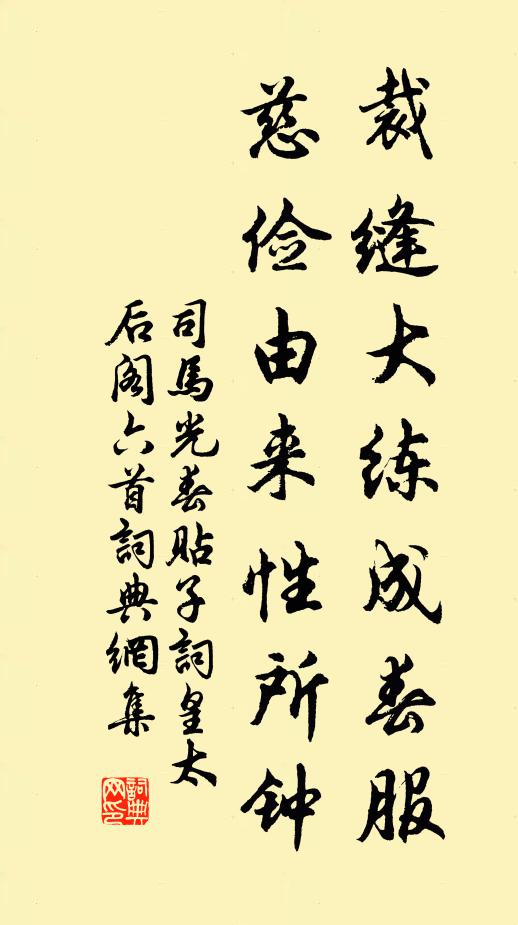 裁缝大练成春服
慈俭由来性所钟
司馬光春貼子詞皇太
后阁六首詞典網集
詞典
网印